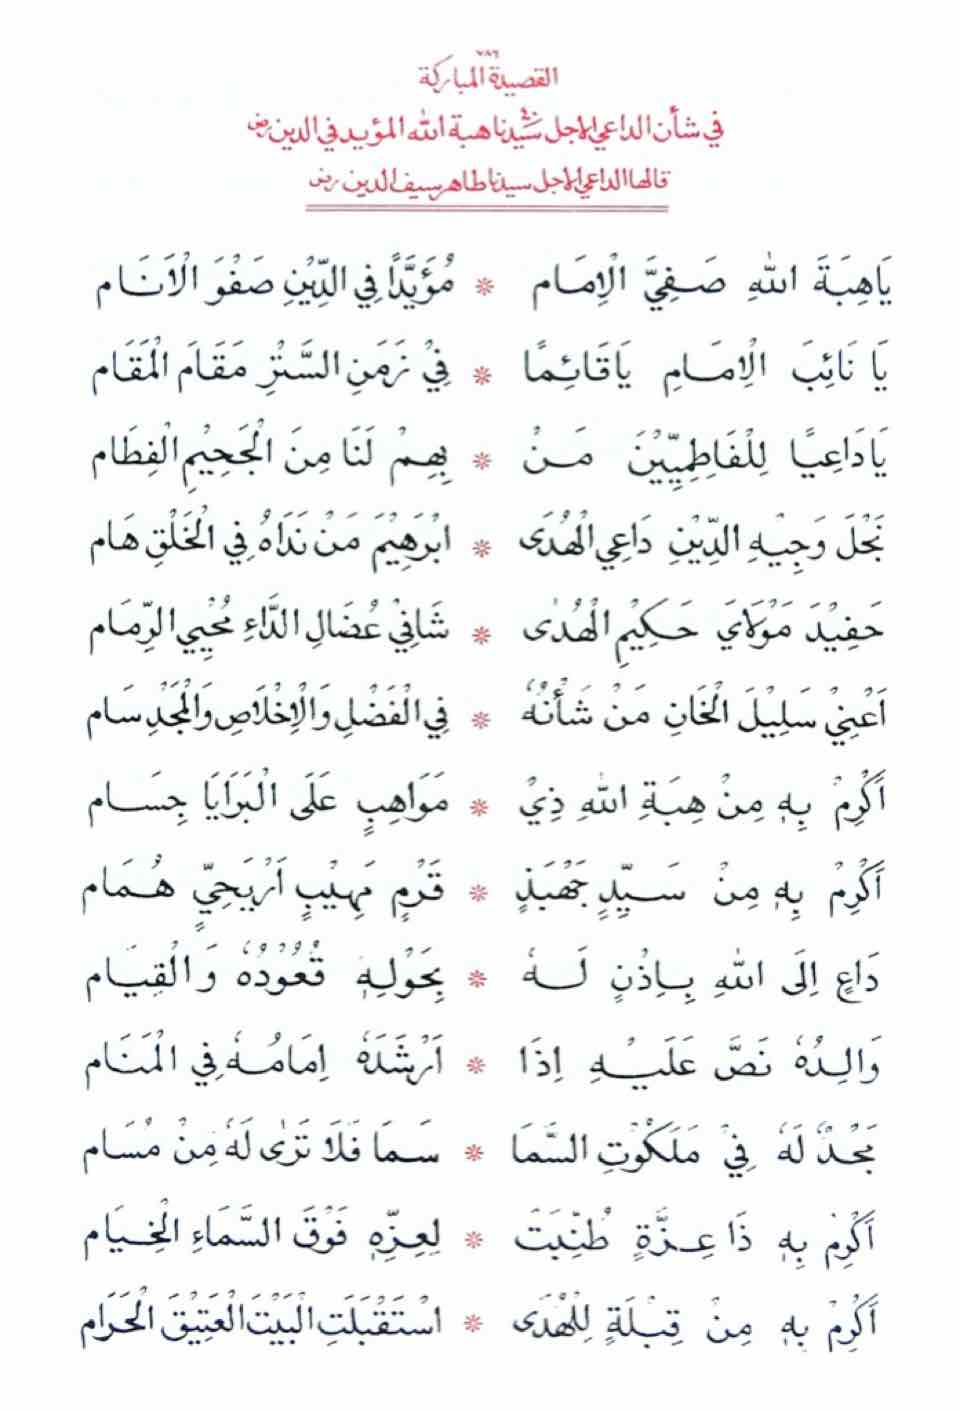 ٧٨٦
القصيدة المباركة
في شأن الداعي الاجل ٤٠ سيدنا هبة الله المؤيد في الدين رض
قالها الداعي الاجل سيدنا طاهر سيف الدين رض
يَاهِبَةَ اللهِ صَفِيَّ الْاِمَام * مُؤَيَّدًا فِي الدِّيْنِ صَفْوَ الْاَنَام
يَا نَائِبَ الْاِمَامِ يَاقَائِمًا * فِيْ زَمَنِ السَّتْرِ مَقَامَ الْمَقَام
يَادَاعِيًا لِلْفَاطِمِيِّيْنَ مَنْ * بِهِمْ لَنَا مِنَ الْجَحِيْمِ الْفِطَام
نَجْلَ وَجِيْهِ الدِّيْنِ دَاعِي الْهُدَى * ابْرَهِيْمَ مَنْ نَدَاهُ فِي الْخَلْقِ هَام
حَفِيْدَ مَوْلَايَ حَكِيْمِ الْهُدٰى * شَافِيْ عُضَالِ الدَّاءِ مُحْيِي الرِّمَام
اَعْنِيْ سَلِيْلَ الْخَانِ مَنْ شَأْنُهٗ * فِي الْفَضْلِ وَالْاِخْلَاصِ وَالْمَجْدِ سَام
اَكْرِمْ بِهٖ مِنْ هِبَةِ اللهِ ذِيْ * مَوَاهِبٍ عَلَى الْبَرَايَا جِسَام
اَكْرِمْ بِهٖ مِنْ سَيِّدٍ جَهْبَذٍ * قَرْمٍ مَهِيْبٍ اَرْيَحِيٍّ هُمَام
دَاعٍ اِلَى اللهِ بِاِذْنٍ لَهٗ * بِحَوْلِهٖ قُعُوْدُهٗ وَالْقِيَام
وَالِدُهٗ نَصَّ عَلَيْهِ اِذَا * اَرْشَدَهٗ اِمَامُهٗ فِي الْمَنَام
مَجْدٌ لَهٗ فِيْ مَلَكُوْتِ السَّمَا * سَمَا فَلَا تَرٰى لَهٗ مِنْ مُسَام
اَكْرِمْ بِهٖ ذَا عِزَّةٍ طُنِّبَتْ * لِعِزِّهٖ فَوْقَ السَّمَاءِ الْخِيَام
اَكْرِمْ بِهٖ مِنْ قِبْلَةٍ لِلْهُدَى * اسْتَقْبَلَتِ الْبَيْتَ الْعَتِيْقَ الْحَرَام